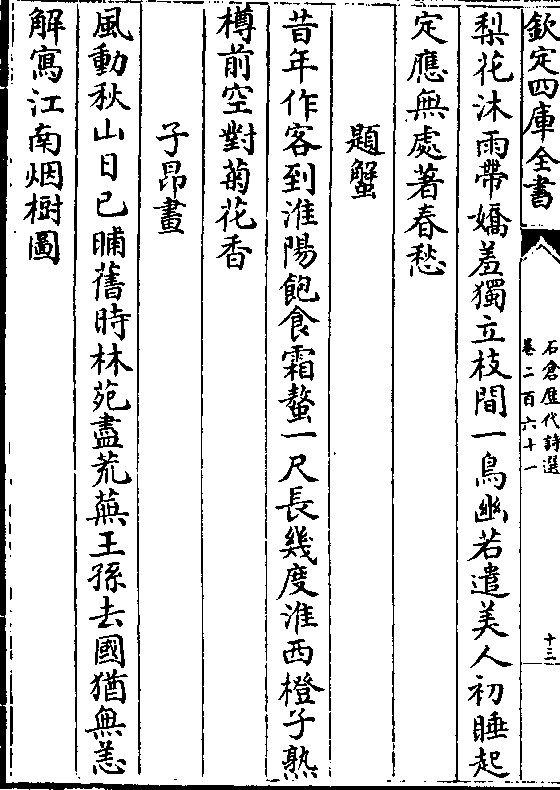 欽定四庫全書
石倉歴代詩選
卷二百六十一
十三
梨花沐雨帶嬌羞獨立枝間一鳥幽若遣美人初睡起
定應無處著春愁
題蟹
昔年作客到淮陽飽食霜螯一尺長幾度淮西橙子熟
樽前空對菊花香
子昂畫
風動秋山日已晡舊時林苑盡荒蕪王孫去國猶無恙
解寫江南烟樹圖